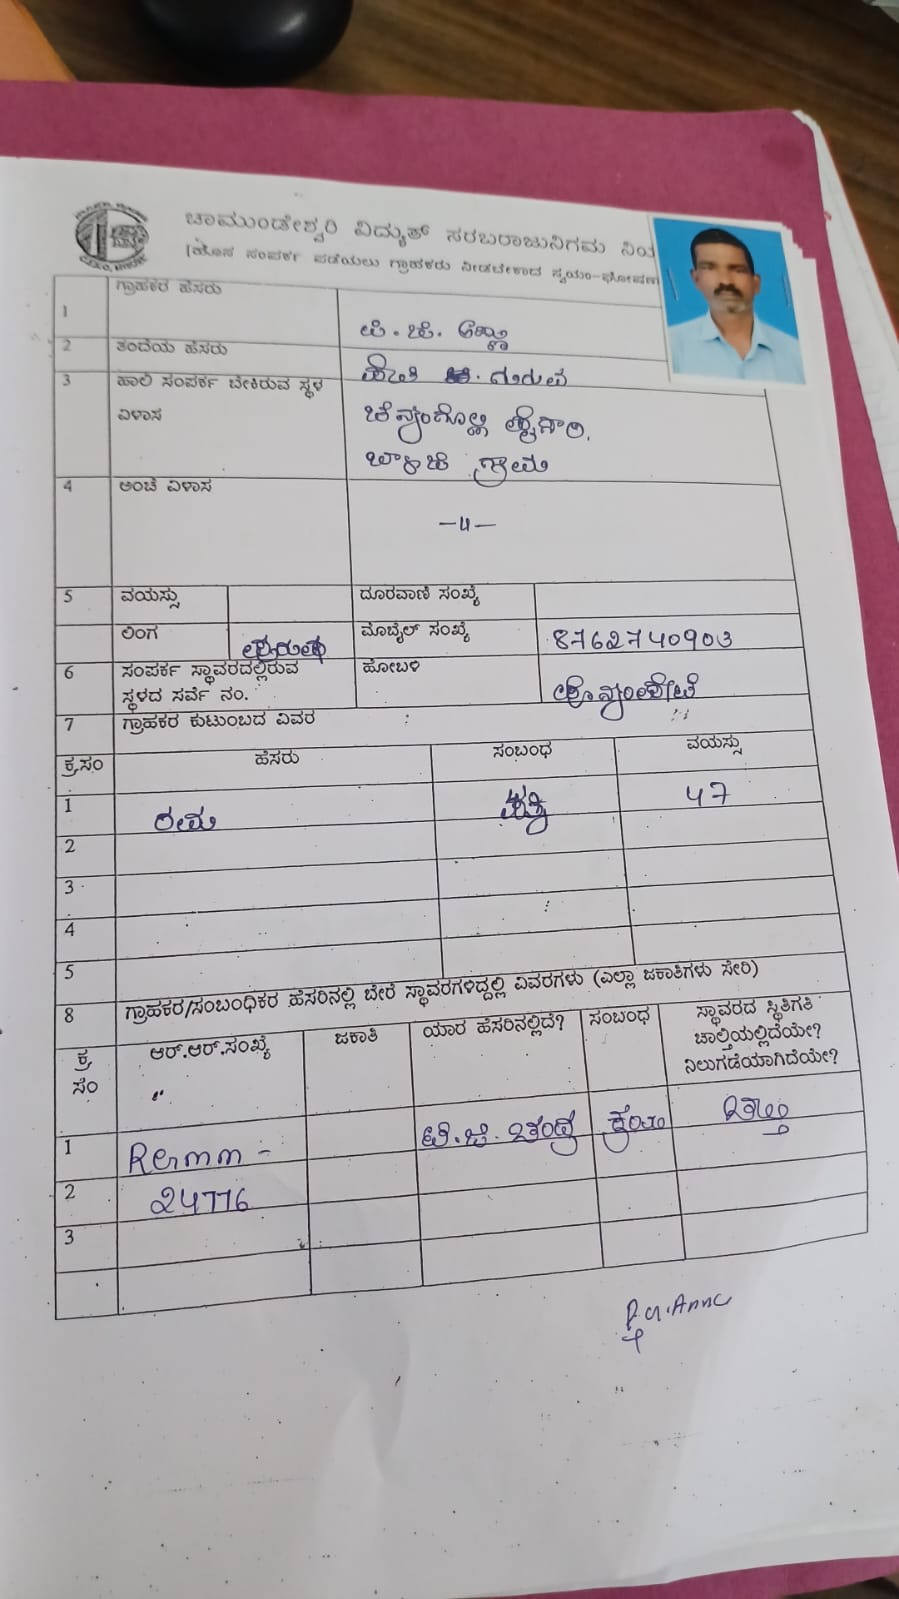 ಚಾಮುಂಡೇಶ್ವರಿ ವಿದ್ಯುತ್ ಸರಬರಾಜುನಿಗಮ ನಿಯ
[ಹೊಸ ಸಂಪರ್ಕ ಪಡೆಯಲು ಗ್ರಾಹಕರು ನೀಡಬೇಕಾದ ಸ್ವಯಂ-ಘೋಷಣ
1 ಗ್ರಾಹಕರ ಹೆಸರು ಪಿ. ಜಿ. ಅಣ್ಣ
2 ತಂದೆಯ ಹೆಸರು ಗುರುವ
3 ಹಾಲಿ ಸಂಪರ್ಕ ಬೇಕಿರುವ ಸ್ಥಳ
ವಿಳಾಸ ಚೆನ್ನಂಗೊಲ್ಲಿ ಪೈಸಾರಿ.
ಗ್ರಾಮ
4 ಅಂಚೆ ವಿಳಾಸ —11—
5 ವಯಸ್ಸು ದೂರವಾಣಿ ಸಂಖ್ಯೆ
ಲಿಂಗ ಪುರುಷ ಮೊಬೈಲ್ ಸಂಖ್ಯೆ 8762740903
6 ಸಂಪರ್ಕ ಸ್ಥಾವರದಲ್ಲಿರುವ ಹೋಬಳಿ ಪೊನ್ನಂಪೇಟೆ
ಸ್ಥಳದ ಸರ್ವೆ ನಂ.
7 ಗ್ರಾಹಕರ ಕುಟುಂಬದ ವಿವರ
ಕ್ರ.ಸಂ ಹೆಸರು ಸಂಬಂಧ ವಯಸ್ಸು
1 ಪತ್ನಿ 47
2
3
4
5
8 ಗ್ರಾಹಕರ/ಸಂಬಂಧಿಕರ ಹೆಸರಿನಲ್ಲಿ ಬೇರೆ ಸ್ಥಾವರಗಳಿದ್ದಲ್ಲಿ ವಿವರಗಳು (ಎಲ್ಲಾ ಜಕಾತಿಗಳು ಸೇರಿ)
ಕ್ರ ಆರ್.ಆರ್.ಸಂಖ್ಯೆ ಜಕಾತಿ ಯಾರ ಹೆಸರಿನಲ್ಲಿದೆ? ಸಂಬಂಧ ಸ್ಥಾವರದ ಸ್ಥಿತಿಗತಿ
ಸಂ ಚಾಲ್ತಿಯಲ್ಲಿದೆಯೇ?
ನಿಲುಗಡೆಯಾಗಿದೆಯೇ?
1 ಪಿ.ಜಿ. ಚಂದ್ರ
2 24776
3